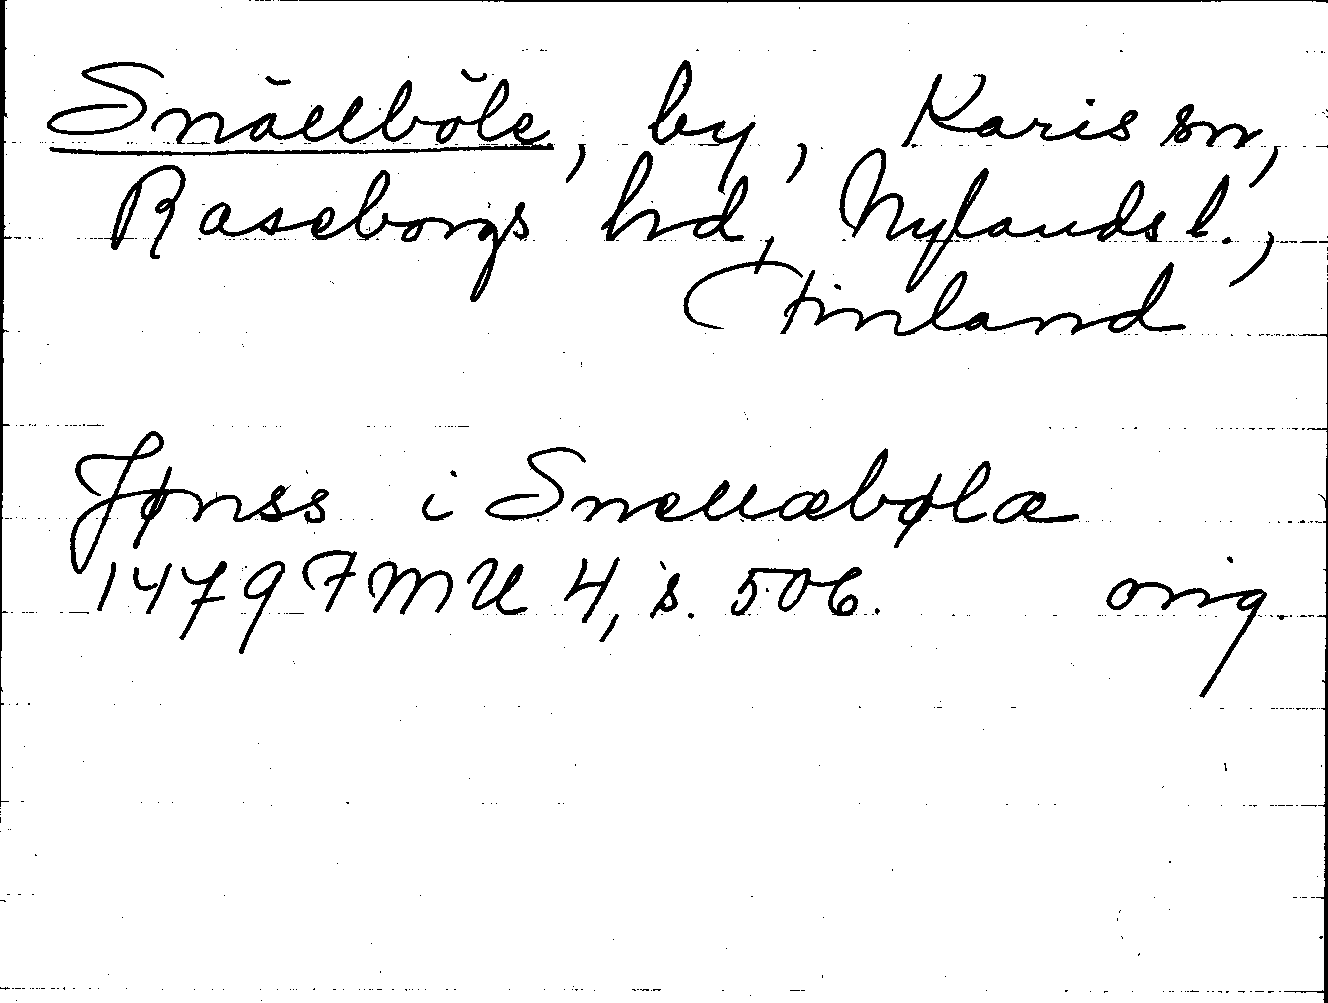 Snällböle, by, Karis sn,
Raseborgs hd, Nylands l.,
Finland
Jønss i Snellæbølæ
1479 FMU 4, s. 506. orig.